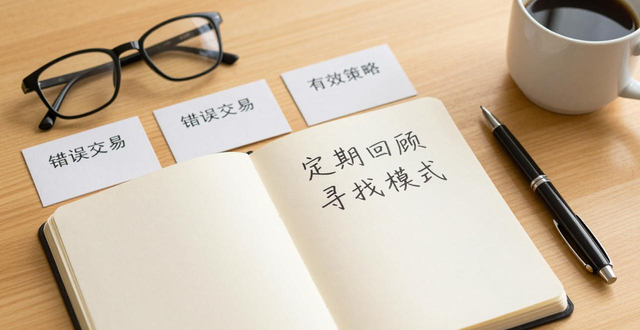 错误交易
错误交易
有效策略
定期回顾
寻找模式